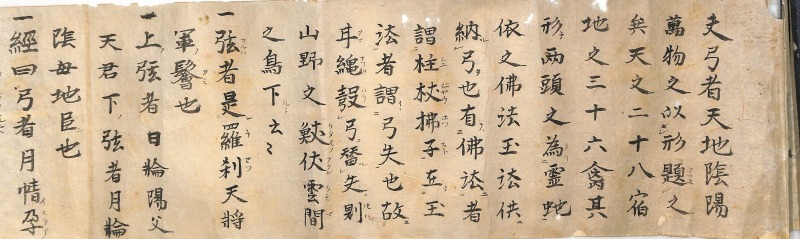 夫弓者天地陰陽
萬物之以形題之
矣天之二十八宿
地之三十六禽其
形両頭之為霊虵
依之佛法玉法供
納弓也有佛法者
謂柱杖拂子在玉
法者謂弓矢也故
耳縄弓矢則
山野之伏雲間
之鳥下云々
一弦者是羅刹天將
軍鬢也
一上弦者日輪陽父
天君下弦者月輪
陰母地臣也
一經曰弓者月情孕